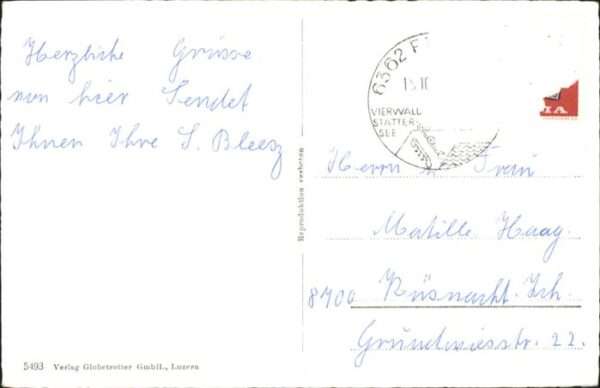 Herzliche Grüsse
von hier Sendet
Ihnen Ihre S. Bleesz
6362 F
15.10
VIERWALD
STÄTTER
SEE
IA
Herrn u Frau
Matille Haag.
8700 Küsnacht-Zch
Gründwiesstr. 22.
Reproduktion verboten
5493 Verlag Globetrotter GmbH., Luzern